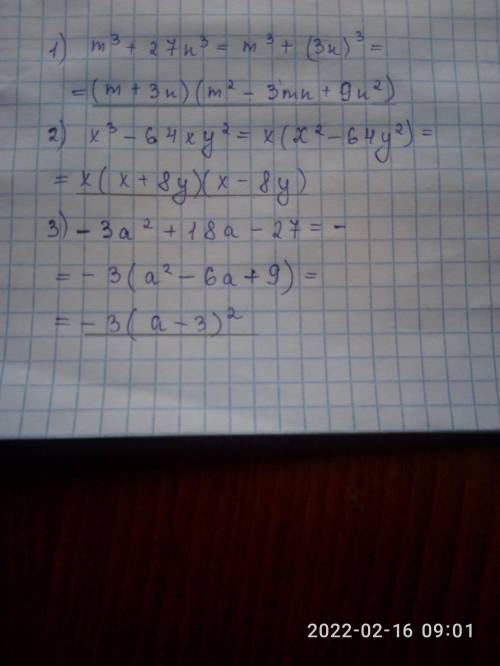 1) m³ + 27n³ = m³ + (3n)³ =
= (m + 3n)(m² - 3mn + 9n²)
2) x³ - 64xy² = x(x² - 64y²) =
= x(x + 8y)(x - 8y)
3) - 3a² + 18a - 27 = -
= - 3(a² - 6a + 9) =
= - 3(a - 3)²
2022-02-16 09:01